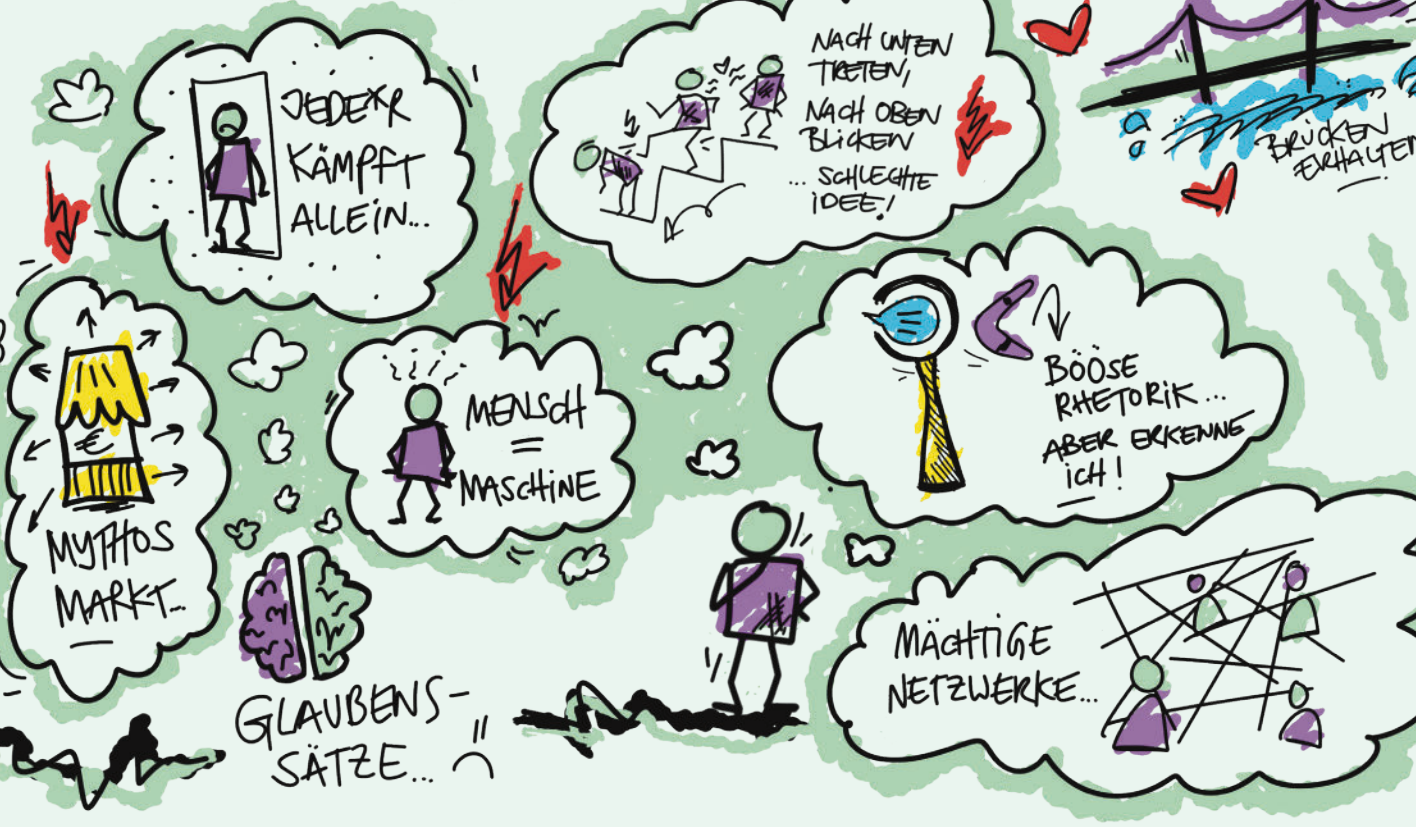 JEDE*R
KÄMPFT
ALLEIN...
NACH UNTEN
TRETEN,
NACH OBEN
BLICKEN
... SCHLECHTE
IDEE!
BRÜCKEN
ERHALTEN
€
MYTHOS
MARKT...
MENSCH
=
MASCHINE
BÖÖSE
RHETORIK...
ABER ERKENNE
ICH!
GLAUBENS-
SÄTZE...
MÄCHTIGE
NETZWERKE...